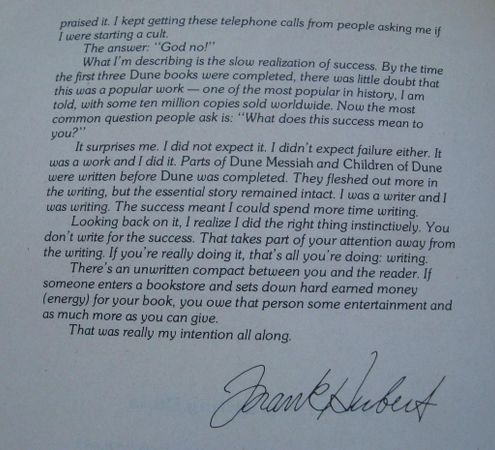 praised it. I kept getting these telephone calls from people asking me if
I were starting a cult.
The answer: "God no!"
What I'm describing is the slow realization of success. By the time
the first three Dune books were completed, there was little doubt that
this was a popular work — one of the most popular in history, I am
told, with some ten million copies sold worldwide. Now the most
common question people ask is: "What does this success mean to
you?"
It surprises me. I did not expect it. I didn't expect failure either. It
was a work and I did it. Parts of Dune Messiah and Children of Dune
were written before Dune was completed. They fleshed out more in
the writing, but the essential story remained intact. I was a writer and I
was writing. The success meant I could spend more time writing.
Looking back on it, I realize I did the right thing instinctively. You
don't write for the success. That takes part of your attention away from
the writing. If you're really doing it, that's all you're doing: writing.
There's an unwritten compact between you and the reader. If
someone enters a bookstore and sets down hard earned money
(energy) for your book, you owe that person some entertainment and
as much more as you can give.
That was really my intention all along.
Frank Herbert